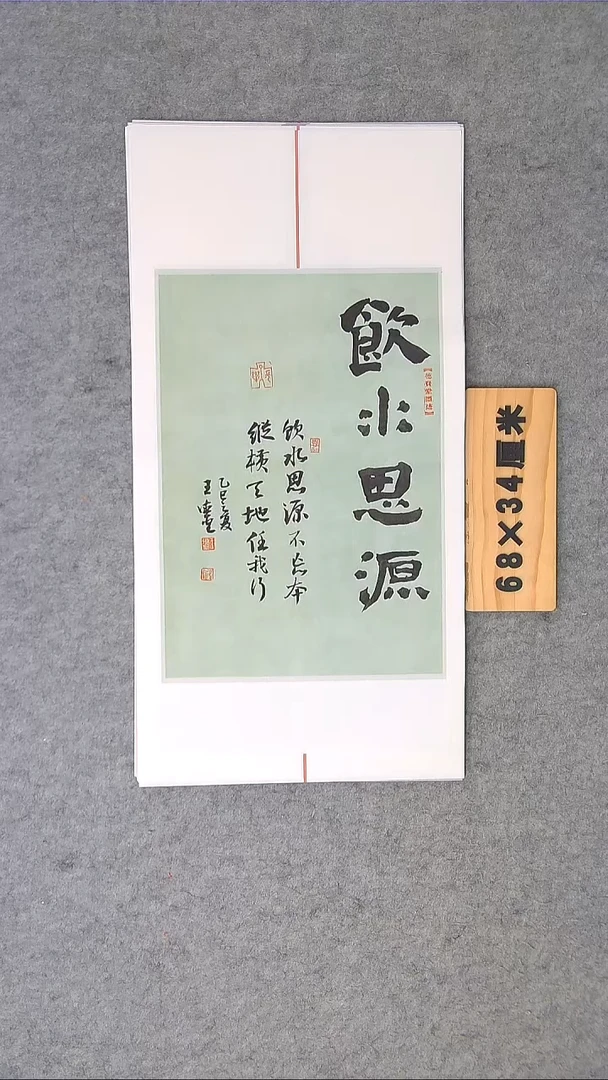 飲水思源
飲水思源不忘本
縱橫天地任我行
乙巳之夏
王
68×34厘米